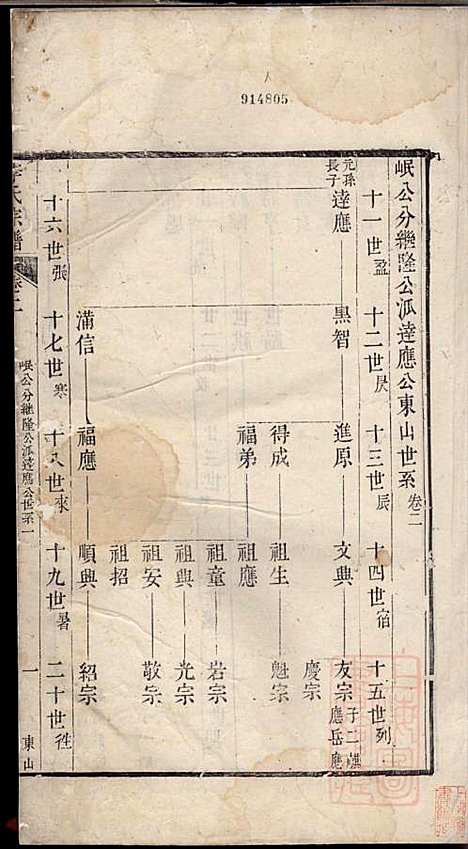 914805
岷公分繼隆公派達應公東山世系 卷二
十一世盈 十二世昃 十三世辰 十四世宿 十五世列
元孫長子 達應 黑智 進原 文典 友宗 子二 應岳 應
慶宗
得成 祖生 魁宗
福弟 祖應
祖童 岩宗
祖興 光宗
祖安 敬宗
祖招
滿信 福應 順興 紹宗
十六世張 十七世寒 十八世來 十九世暑 二十世往
氏宗譜 卷二 岷公分繼隆公派達應公世系一 一 東山